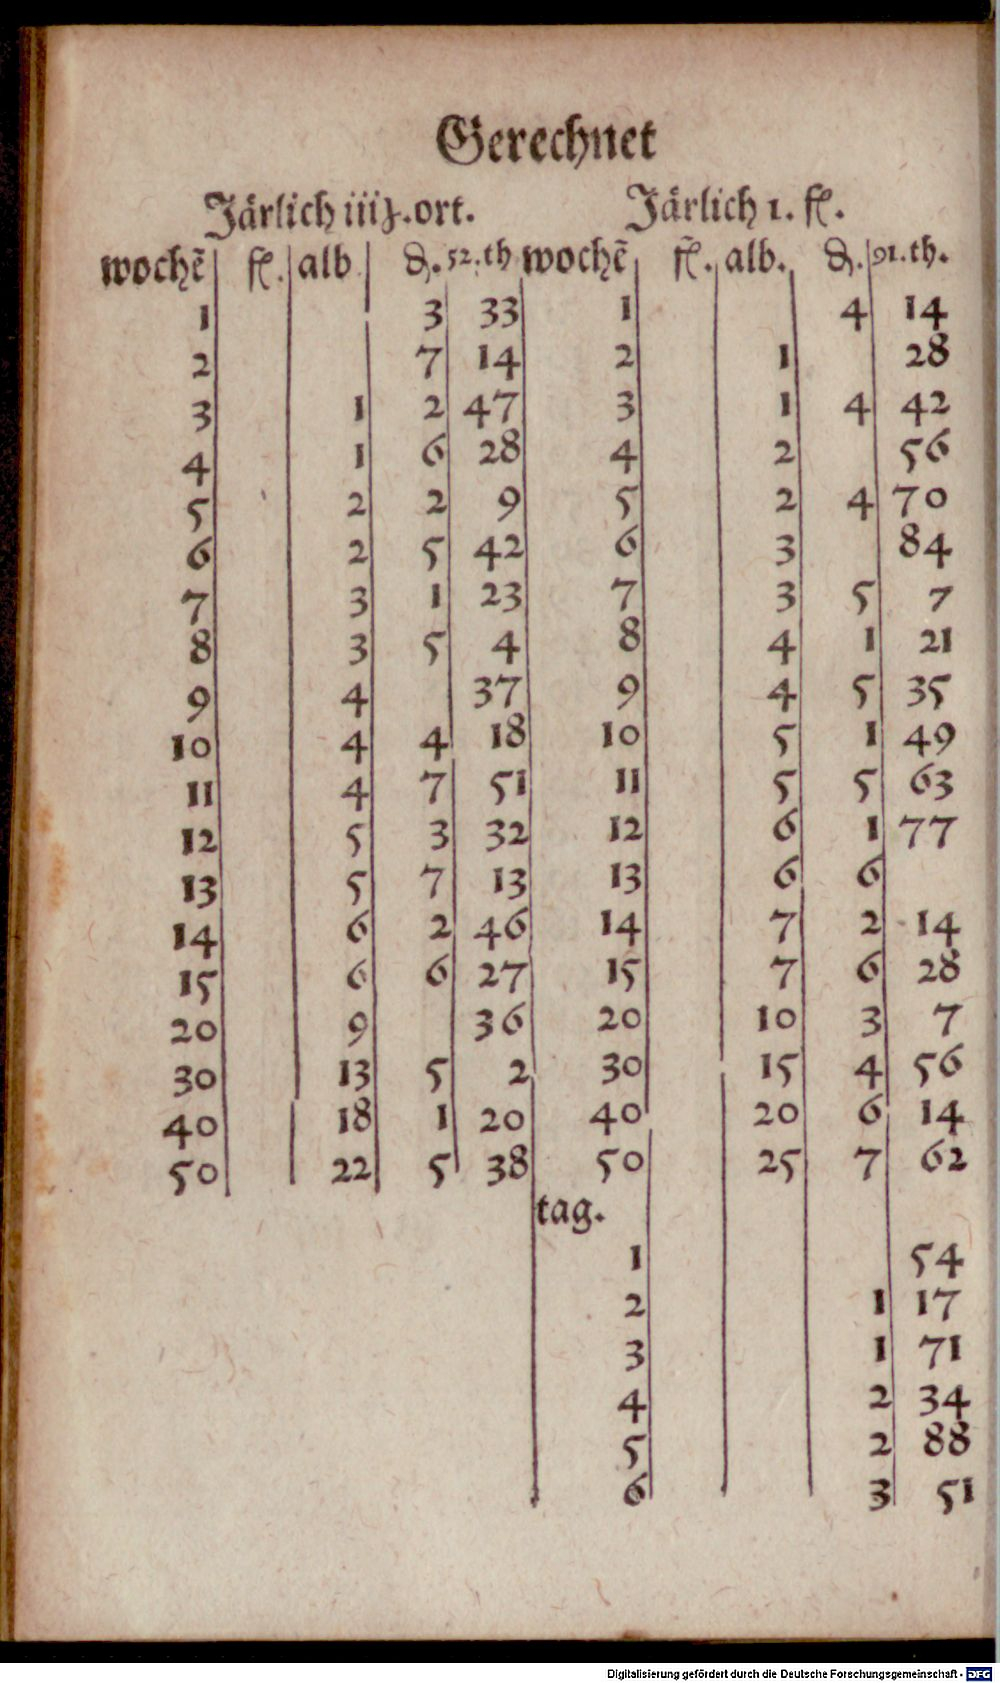 Gerechnet
Järlich iiiʒ. ort.
wochẽ fl. alb ₰. 52.th
1 3 33
2 7 14
3 1 2 47
4 1 6 28
5 2 2 9
6 2 5 42
7 3 1 23
8 3 5 4
9 4 37
10 4 4 18
11 4 7 51
12 5 3 32
13 5 7 13
14 6 2 46
15 6 6 27
20 9 36
30 13 5 2
40 18 1 20
50 22 5 38
Järlich 1. fl.
wochẽ fl. alb. ₰. 91.th.
1 4 14
2 1 28
3 1 4 42
4 2 56
5 2 4 70
6 3 84
7 3 5 7
8 4 1 21
9 4 5 35
10 5 1 49
11 5 5 63
12 6 1 77
13 6 6
14 7 2 14
15 7 6 28
20 10 3 7
30 15 4 56
40 20 6 14
50 25 7 62
tag.
1 54
2 1 17
3 1 71
4 2 34
5 2 88
6 3 51
Digitalisierung gefördert durch die Deutsche Forschungsgemeinschaft - DFG